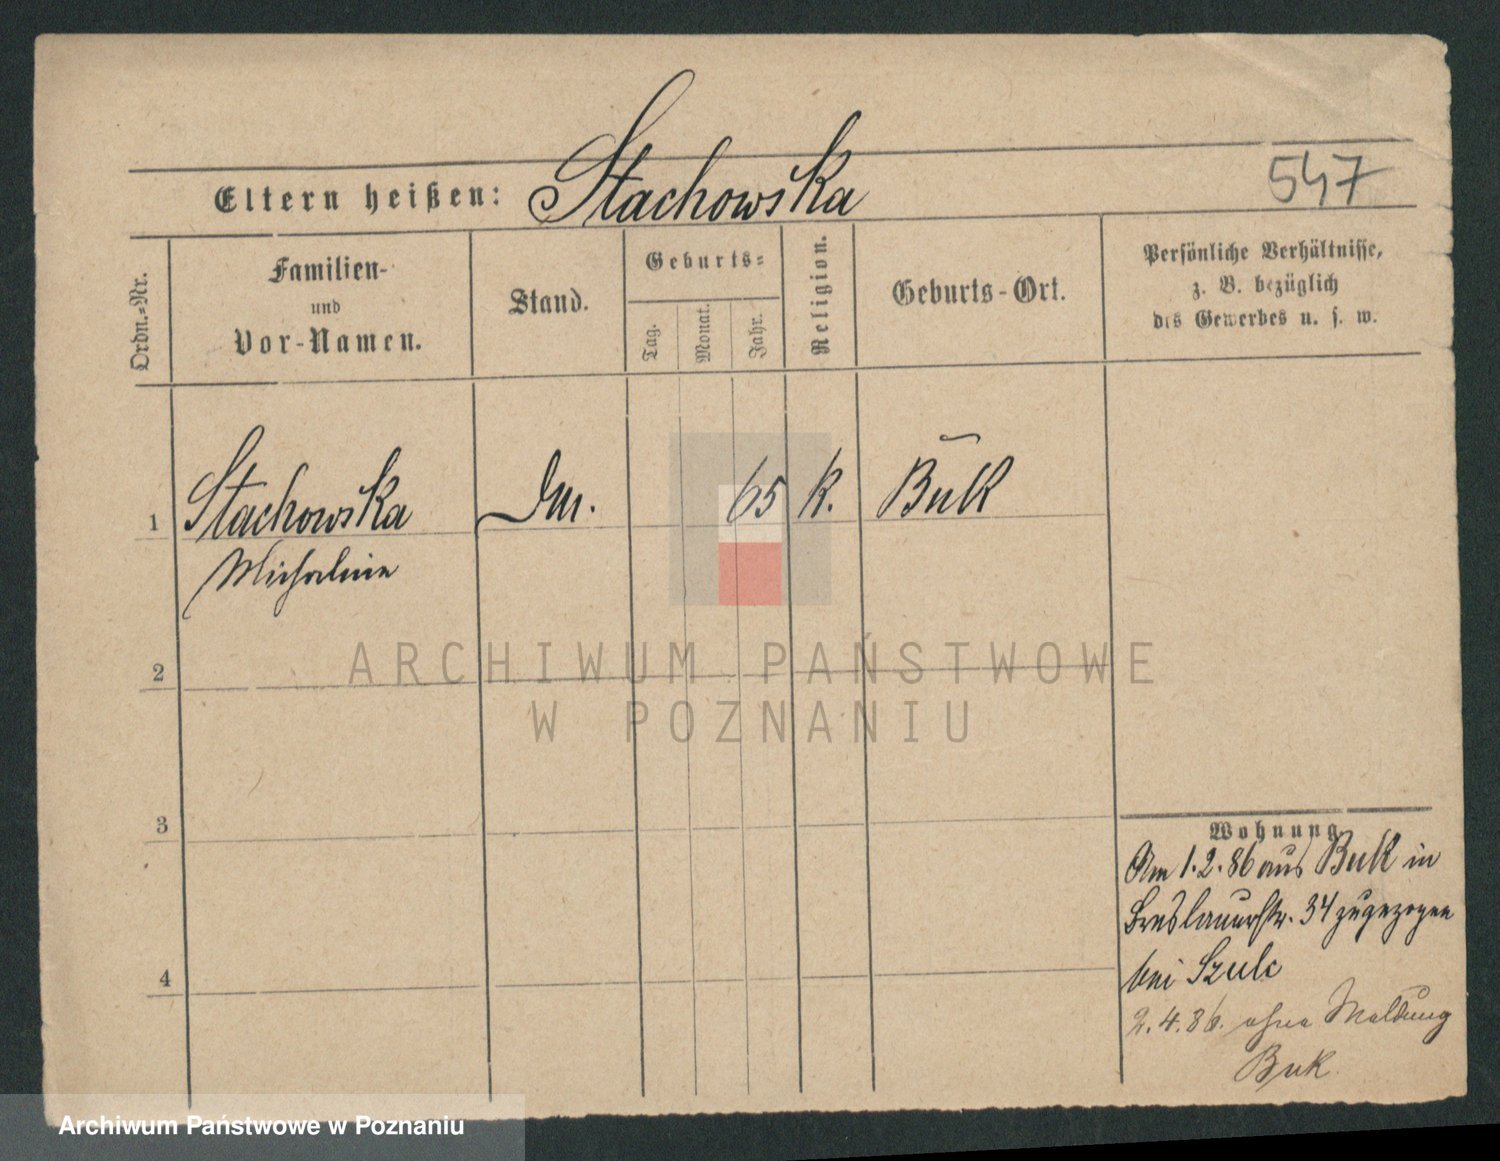 547
Eltern heißen: Stachowska
Ordn.-Nr.
Familien-
und
Vor-Namen.
Stand.
Geburts-
Tag.
Monat.
Jahr.
Religion.
Geburts-Ort.
Persönliche Verhältnisse,
z. B. bezüglich
des Gewerbes u. s. w.
1 Stachowska 65 k. Buk
Michaline
2
3
4
Wohnung
Am 1.2.86 aus Buk in
Breslauerstr. 34 zugezogen
bei Szulc
2.4.86. ohne Meldung
Buk.
ARCHIWUM PAŃSTWOWE
W POZNANIU
Archiwum Państwowe w Poznaniu